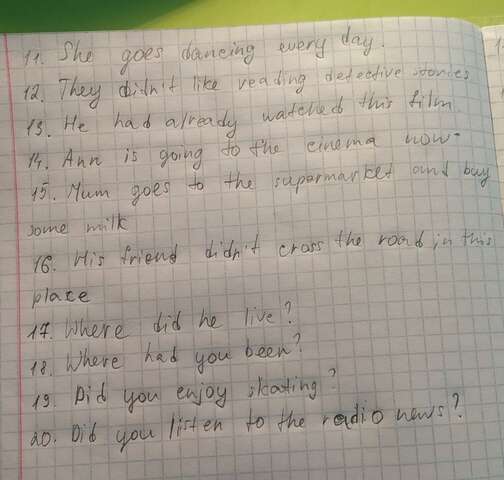 11. She goes dancing every day.
12. They didn't like reading detective stories
13. He had already watched this film.
14. Ann is going to the cinema now.
15. Mum goes to the supermarket and buy
some milk
16. His friend didn't cross the road in this
place
17. Where did he live?
18. Where had you been?
19. Did you enjoy skating?
20. Did you listen to the radio news?